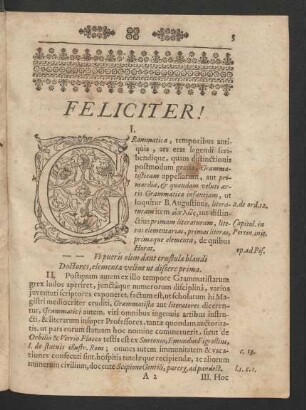 5
FELICITER!
I.
GRammatica, temporibus anti-
quis, ars erat legendi scri-
bendique, quam distinctionis
postmodum gratia Gramma-
tisticam appellarunt, aut pri-
mordia, & quandam veluti ar-
tis Grammaticæ infantiam, ut
loquitur B. Augustinus, litera- 2. de ord. 12.
turam item ἁπλῶς, aut distin-
ctius primam literaturam, lite- Capitol. in
ras elementarias, primas literas, Pertin. init.
primaque elementa, de quibus
Horat. ep. ad Pis.
— — Ut pueris olim dant crustula blandi
Doctores, elementa velint ut discere prima.
II. Postquam autem ex illo tempore Grammatistarum
grex ludos aperiret, junctisque numerorum disciplinâ, varios
juventuti scriptores exponeret, factum est, ut scholarum hi Ma-
gistri mediocriter eruditi, Grammatistæ aut literatores diceren-
tur, Grammatici autem, viri omnibus ingenuis artibus instru-
cti, & literarum insuper Professores, tanta quondam auctorita-
tis, ut pars eorum statuarum hoc nomine consumeretur, sunt de
Orbilio & Verrio Flacco testis est ex Suetonio, Edmundus Figrelius,
l. de statuis illustr. Rom; omnes autem immunitatem & vacati- c. 19.
onem consecuti sint hospitis tutelæque recipiendæ, & aliorum
munerum civilium, docente Scipione Gentili, parerg. ad pandect. l. 1. c. 1.
A 2 III. Hoc